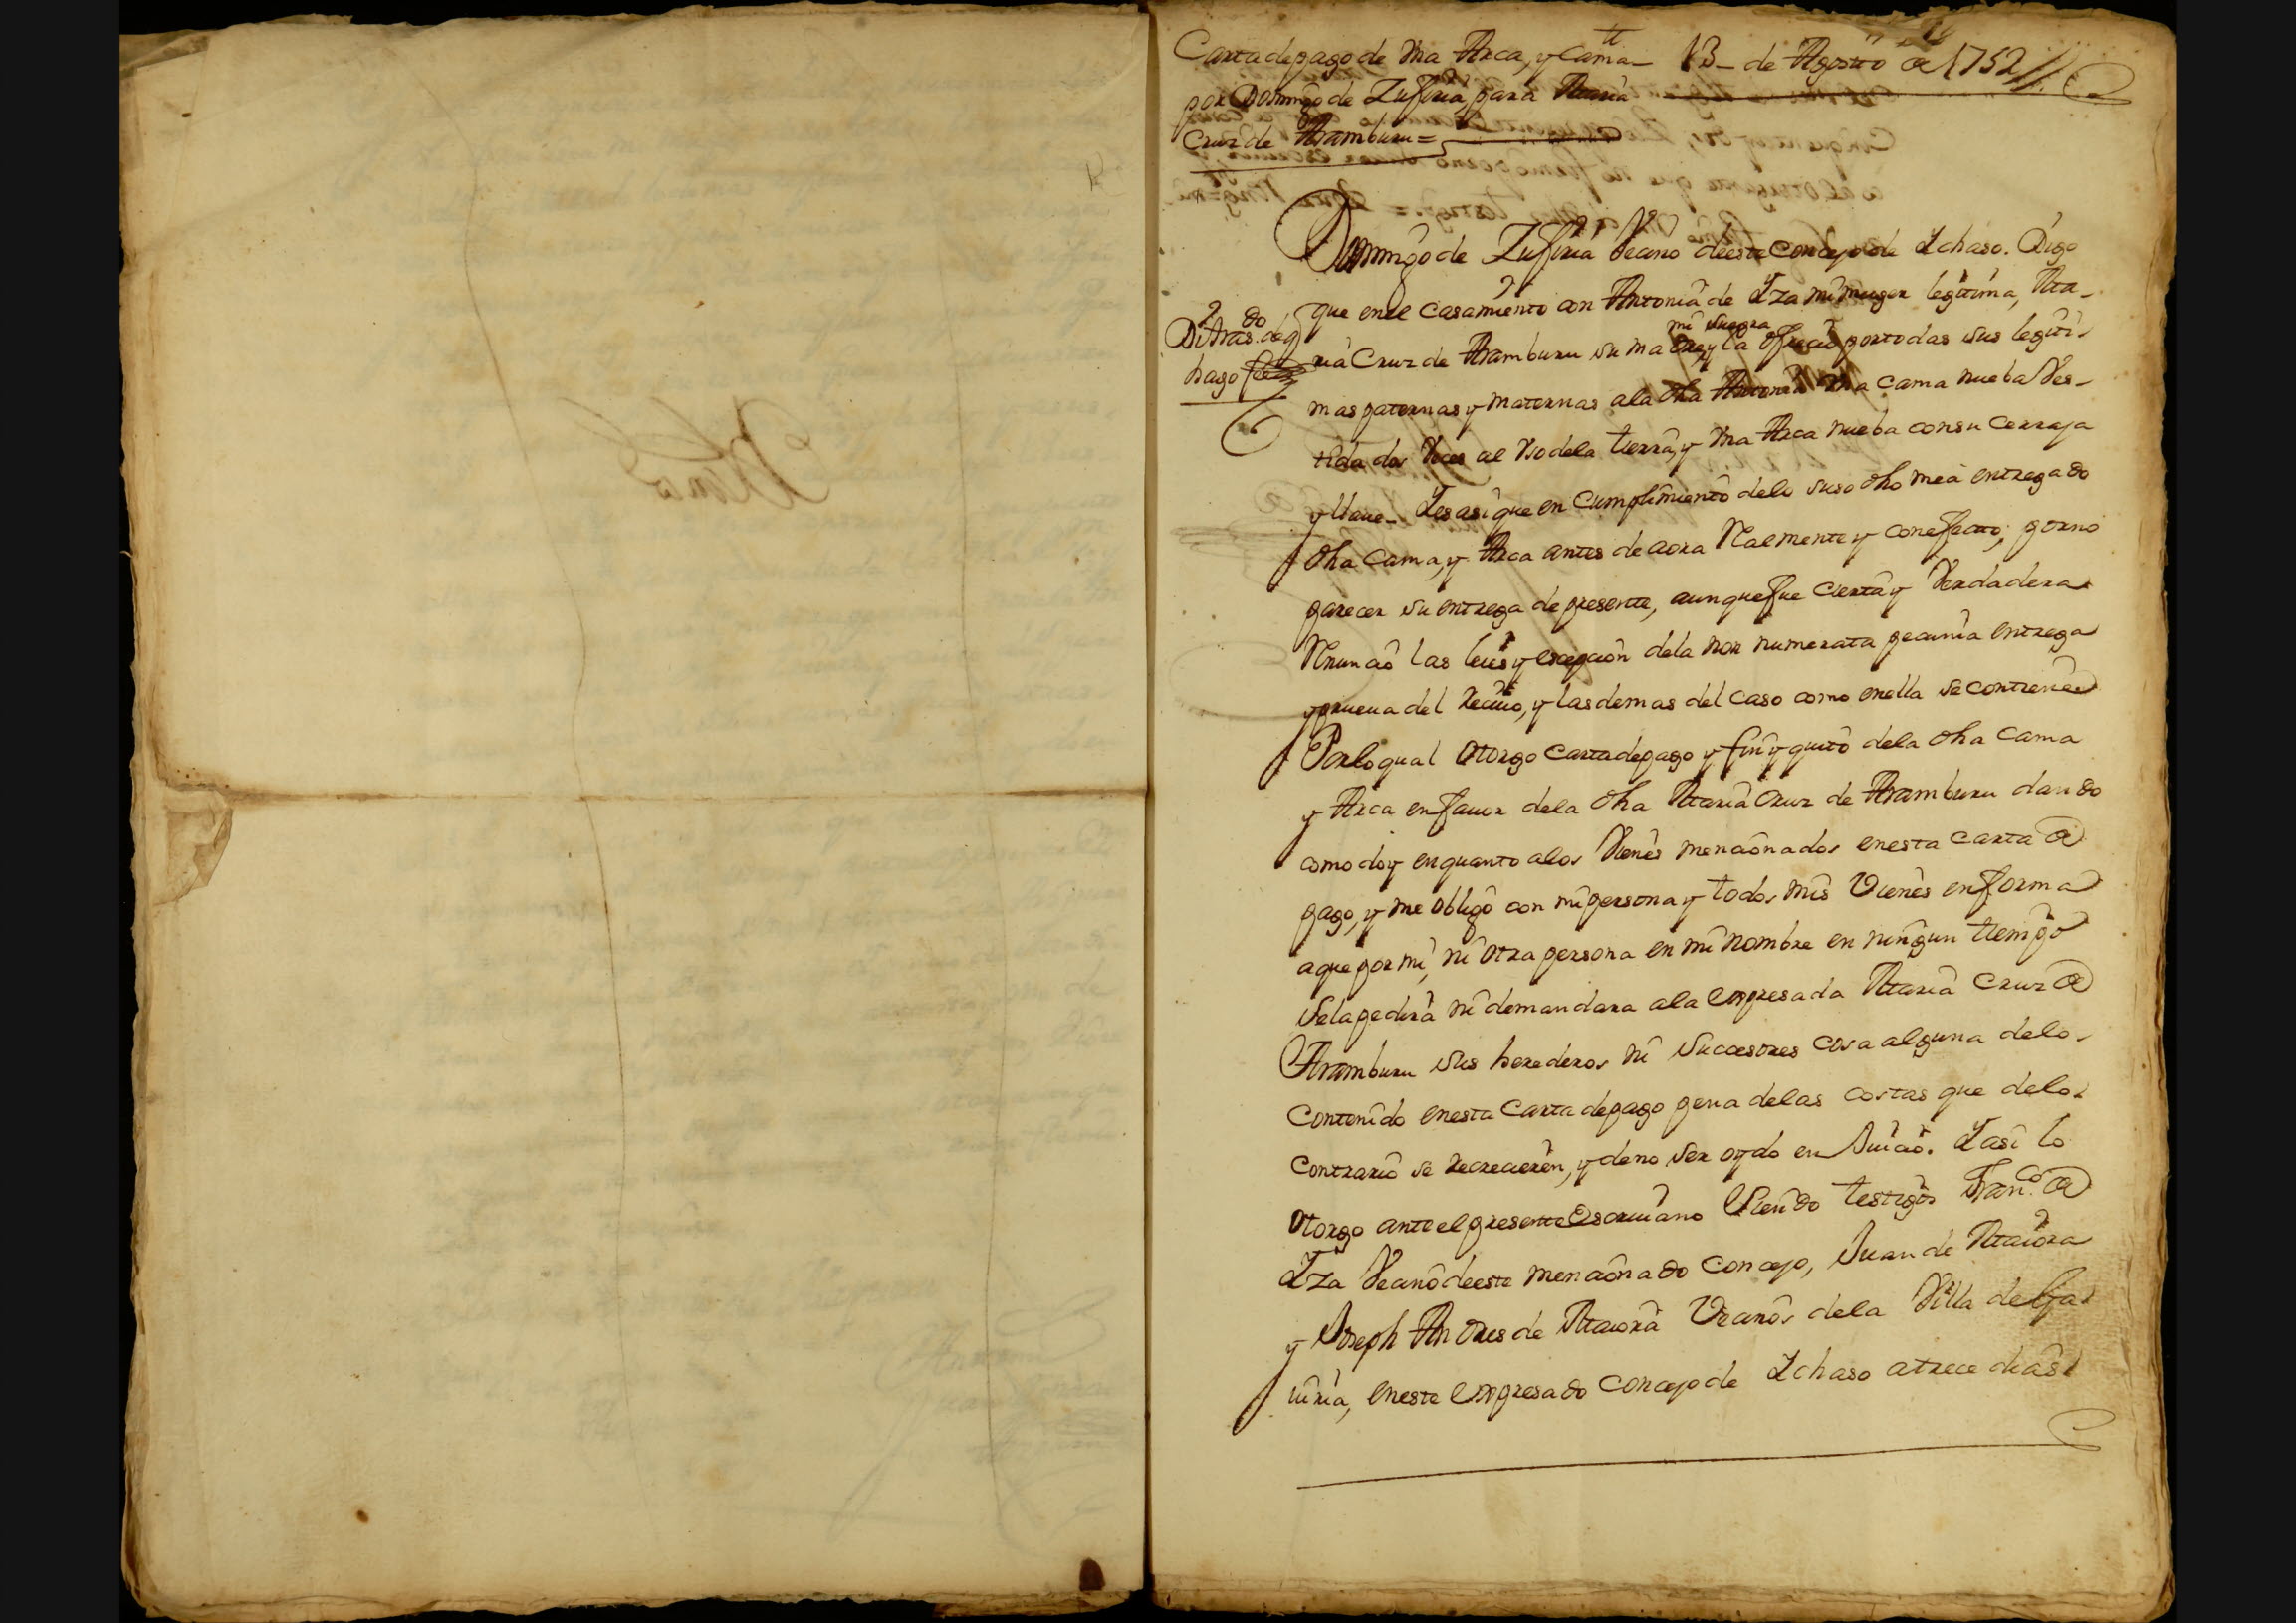 Carta de pago de Vna Arca, y Cama
por Domingo de Zufiria, para Maria
Cruz de Aramburu =
13 de Agosto de 1752
Domingo de Zufiria Vecino de este Concejo de Ichaso. Digo
que en el Casamiento con Antonia de Yza mi muger legitima, Ma-
ria Cruz de Aramburu su madre, y mi suegra la ofrecio por todas sus legiti-
mas paternas y maternas a la dha Antonia Vna cama nueba Ves-
tida dos Veces al Vso de la tierra, y Vna Arca nueba con su Cerraja
y llaue- Y es asi que en Cumplimiento de lo suso dho me à entregado
dha Cama, y Arca antes de aora Realmente y con efecto, y por no
parecer su entrega de presente, aunque fue Cierta y Verdadera
Renuncio las leies y escepcion de la non numerata pecunia entrega
y prueua del reciuo, y las demas del caso como en ella se contiene
Por lo qual Otorgo Carta de pago y fin y quito de la dha Cama
y Arca en fauor de la dha Maria Cruz de Aramburu dando
como doy en quanto a los Vienes mencionados en esta Carta de
pago, y me obligo con mi persona y todos mis Vienes en forma
a que por mi, ni Otra persona en mi nombre en ningun tiempo
se la pedirà ni demandara a la Expresada Maria Cruz de
Aramburu sus herederos ni Succesores cosa alguna de lo
Contenido en esta Carta de pago pena de las costas que de lo
Contrario se recrecieren, y de no ser oydo en Juicio. Y asi lo
Otorgo ante el presente Escriuano Siendo testigos Franco. de
Yza Vecino de este mencionado Concejo, Juan de Maiora
y Joseph Andres de Maiora Vecinos de la Villa de Ga
uiria, en este Expresado Concejo de Ichaso a trece dias
hago fee
Blanco